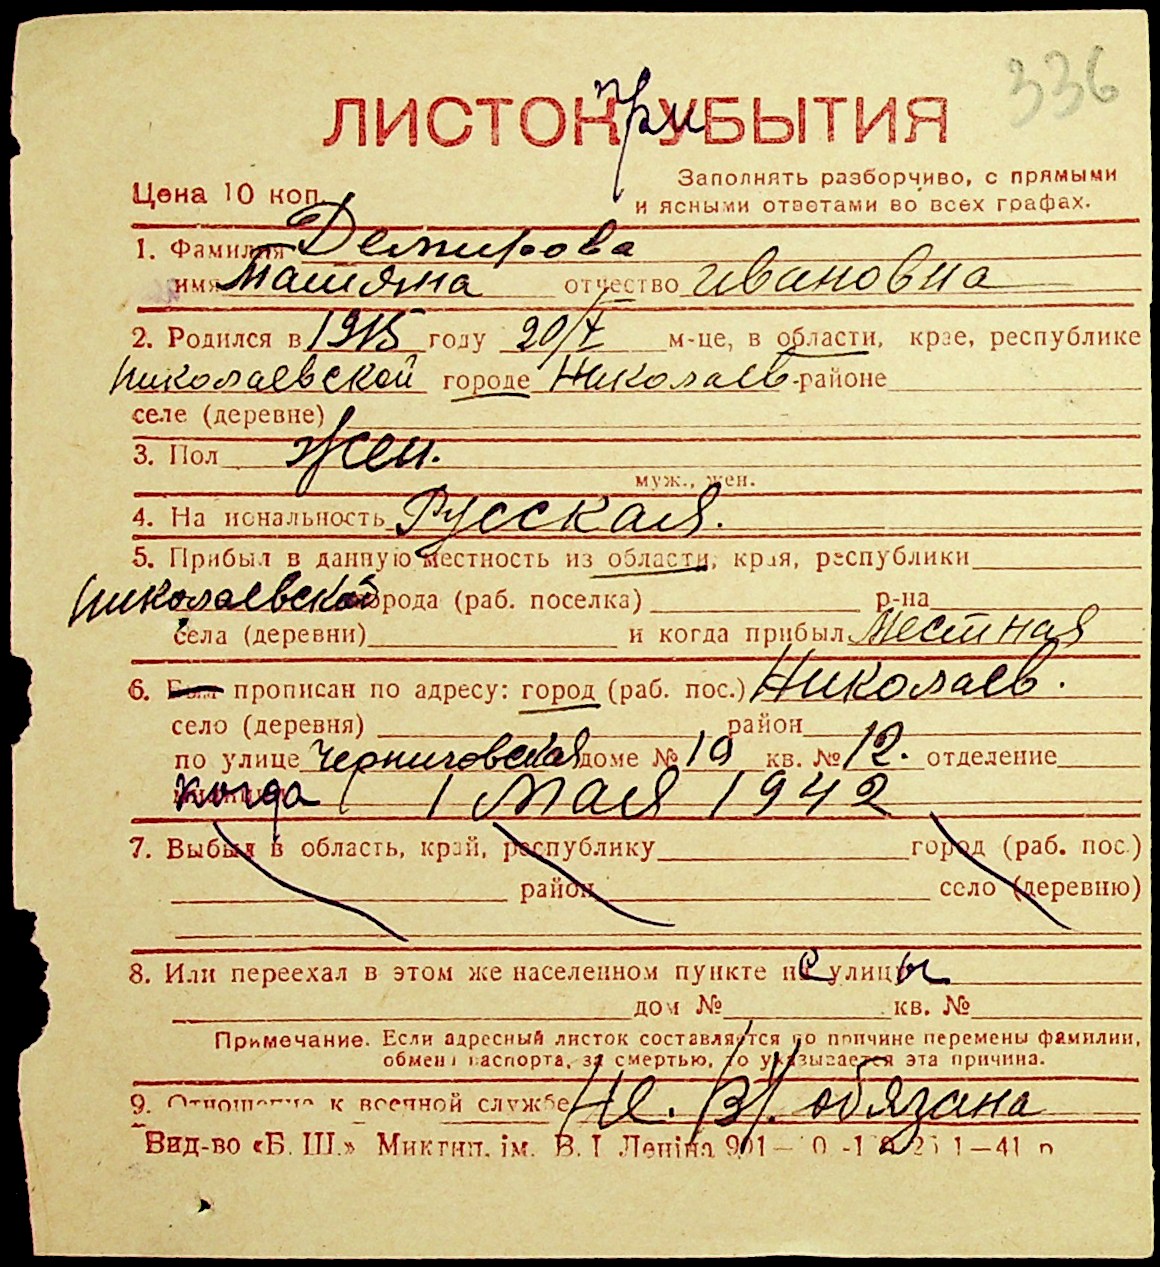 336
ЛИСТОК при УБЫТИЯ
Цена 10 коп.
Заполнять разборчиво, с прямыми
и ясными ответами во всех графах.
1. Фамилия Демирова
имя Татяна отчество Ивановна
2. Родился в 1915 году 20/V м-це, в области, крае, республике
Николаевской городе Николаев районе
селе (деревне)
3. Пол Жен.
муж., жен.
4. Национальность Русская.
5. Прибыл в данную местность из области, края, республики
Николаевской города (раб. поселка) р-на
села (деревни) и когда прибыл Местная
6. Был прописан по адресу: город (раб. пос.) Николаев.
село (деревня) район
по улице Черниговская доме № 19 кв. № 12. отделение
Когда 1 Мая 1942
7. Выбыл в область, край, республику город (раб. пос.)
район село (деревню)
8. Или переехал в этом же населенном пункте с улицы
дом № кв. №
Примечание. Если адресный листок составляется по причине перемены фамилии,
обмена паспорта, за смертью, то указывается эта причина.
9. Отношение к военной службе Не. В/обязана
Вид-во «Б. Ш.» Микгип. ім. В. І Леніна